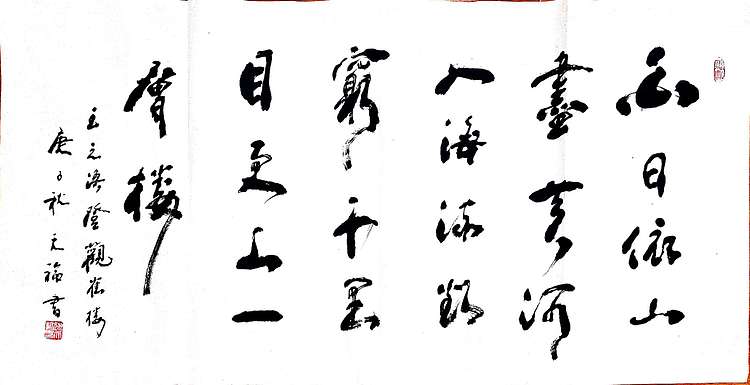 白日依山
盡黄河
入海流欲
窮千里
目更上一
層樓
王之涣登觀雀樓
庚子秋福書